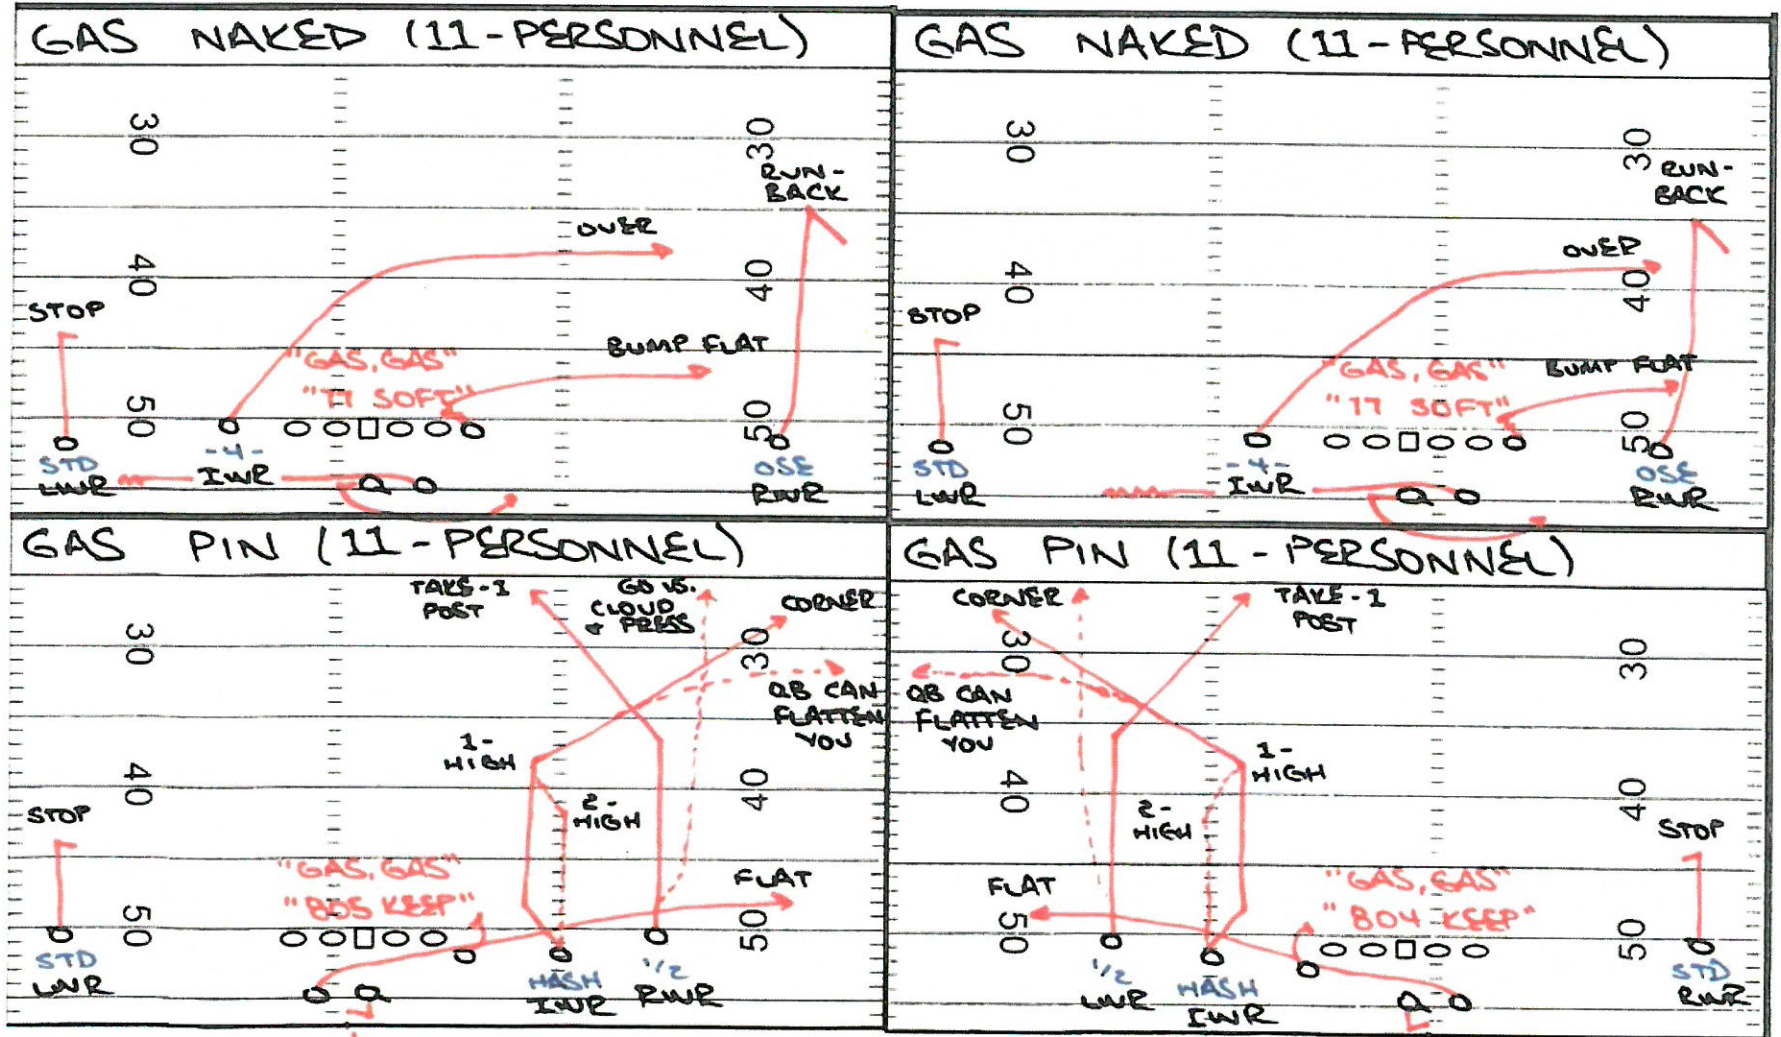 GAS NAKED (11-PERSONNEL)
30
30
RUN-
BACK
OVER
40
40
STOP
BUMP FLAT
"GAS, GAS"
"77 SOFT"
50
50
STD
LWR
-4-
IWR
OSE
RWR
GAS NAKED (11-PERSONNEL)
30
30
RUN-
BACK
OVER
40
40
STOP
BUMP FLAT
"GAS, GAS"
"77 SOFT"
50
50
STD
LWR
-4-
IWR
OSE
RWR
GAS PIN (11-PERSONNEL)
TAKE-1
POST
GO VS.
CLOUD
+ PRESS
CORNER
30
30
QB CAN
FLATTEN
YOU
1-
HIGH
40
40
2-
HIGH
STOP
"GAS, GAS"
"805 KEEP"
FLAT
50
50
STD
LWR
HASH
IWR
1/2
RWR
GAS PIN (11-PERSONNEL)
CORNER
TAKE-1
POST
30
30
QB CAN
FLATTEN
YOU
1-
HIGH
40
40
2-
HIGH
STOP
FLAT
"GAS, GAS"
"804 KEEP"
50
50
1/2
LWR
HASH
IWR
STD
RWR